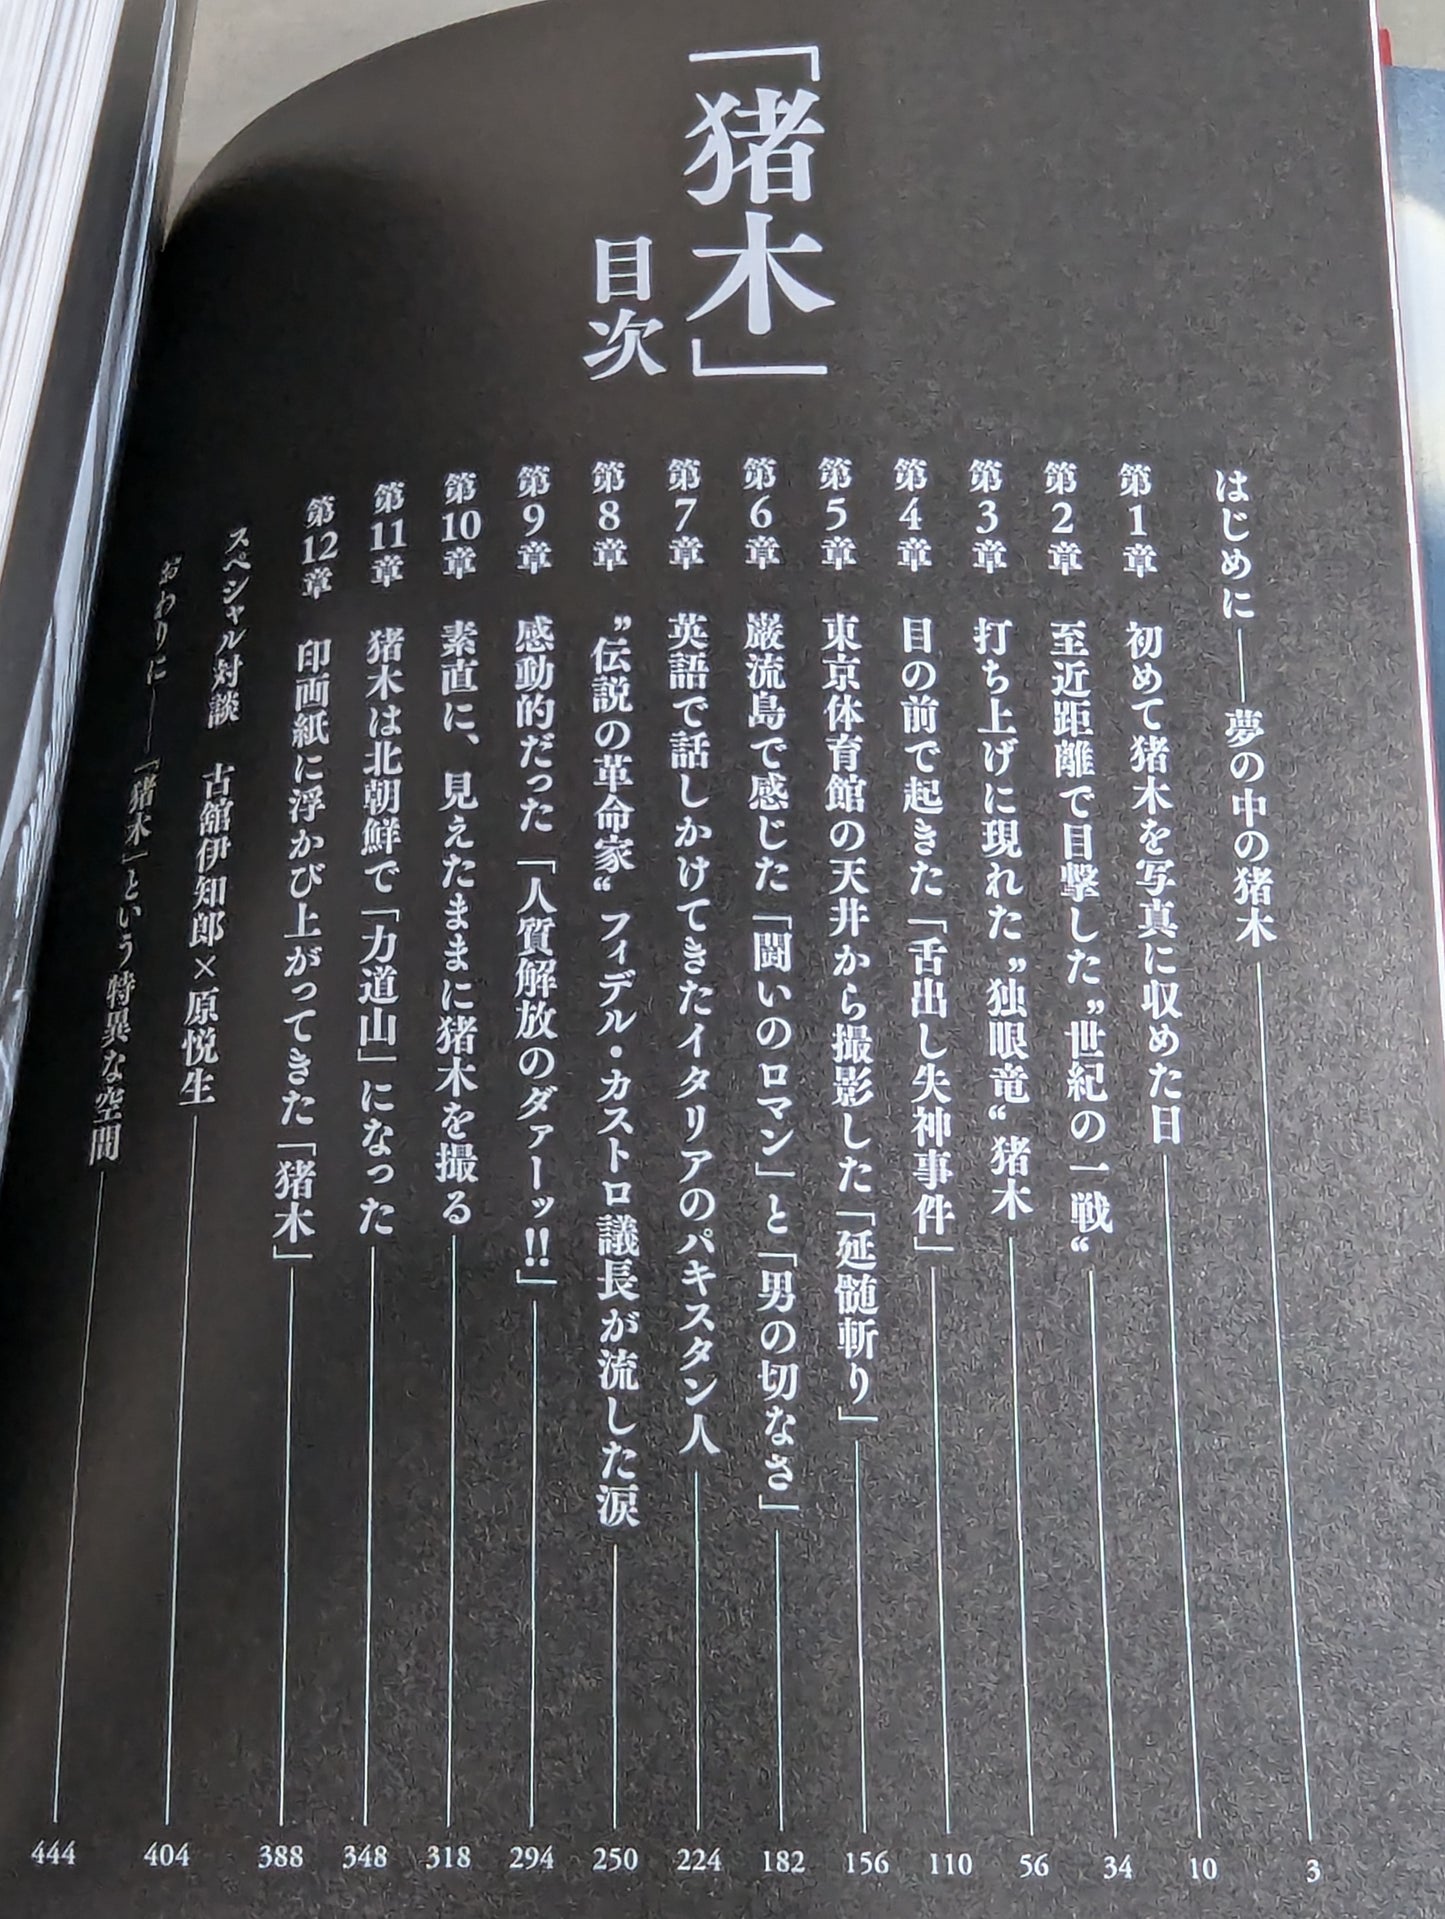 「猪木」
目次
はじめに――夢の中の猪木 3
第1章 初めて猪木を写真に収めた日 10
第2章 至近距離で目撃した〝世紀の一戦〟 34
第3章 打ち上げに現れた〝独眼竜〟猪木 56
第4章 目の前で起きた「舌出し失神事件」 110
第5章 東京体育館の天井から撮影した「延髄斬り」 156
第6章 巌流島で感じた「闘いのロマン」と「男の切なさ」 182
第7章 英語で話しかけてきたイタリアのパキスタン人 224
第8章 〝伝説の革命家〟フィデル・カストロ議長が流した涙 250
第9章 感動的だった「人質解放のダァーッ!!」 294
第10章 素直に、見えたままに猪木を撮る 318
第11章 猪木は北朝鮮で「力道山」になった 348
第12章 印画紙に浮かび上がってきた「猪木」 388
スペシャル対談 古舘伊知郎×原悦生 404
おわりに――「猪木」という特異な空間 444